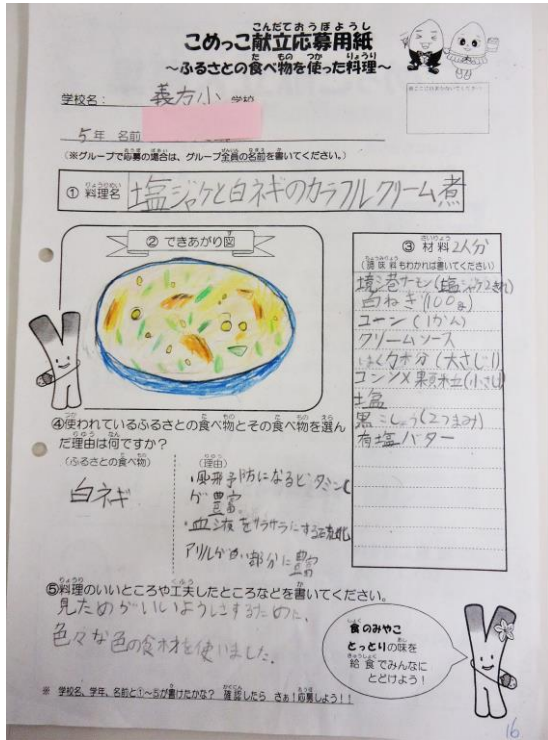 こんだておうぼようし
こめっこ献立応募用紙
～ふるさとの食べ物を使った料理～
学校名： 義方小 学校
5年 名前
(※グループで応募の場合は、グループ全員の名前を書いてください。)
① 料理名 塩ジャケと白ネギのカラフルクリーム煮
② できあがり図
③ 材料 2人分
(調味料もわかれば書いてください)
境港サーモン(塩ジャケ2きれ)
白ねぎ(100g)
コーン(1かん)
クリームソース
はくカ粉(大さじ1)
コンソメ顆粒(小さじ)
塩
黒こしょう(2つまみ)
有塩バター
④使われているふるさとの食べ物とその食べ物を選ん
だ理由は何ですか？
(ふるさとの食べ物)
白ネギ
(理由)
・風邪予防になるビタミンC
が豊富。
・血液をサラサラにする硫化
アリルが白い部分に豊富
⑤料理のいいところや工夫したところなどを書いてください。
見ためがいいようにするために、
色々な色の食材を使いました。
食のみやこ
とっとりの味を
給食でみんなに
とどけよう！
※ 学校名、学年、名前と①～⑤が書けたかな？ 確認したら さぁ！応募しよう！！
16